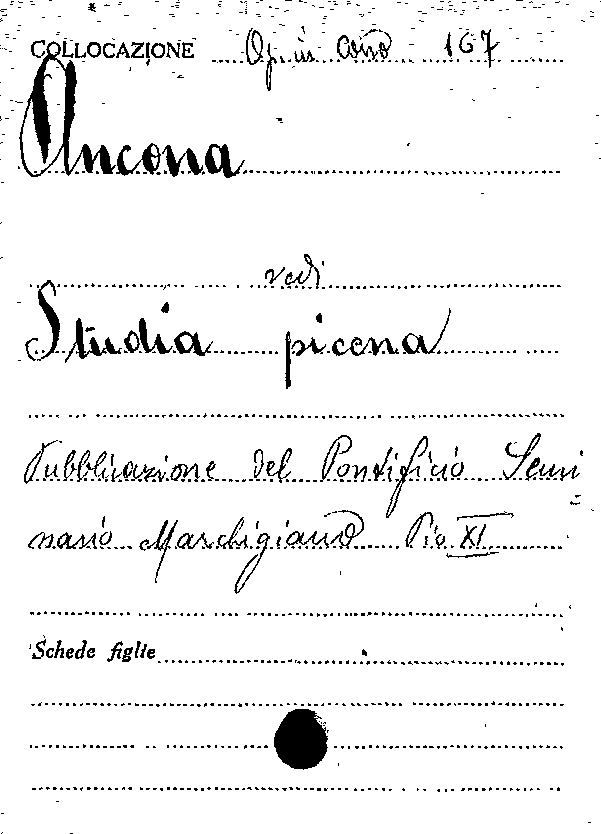 COLLOCAZIONE Op. in cons 167
Ancona
vedi
Studia picena
Pubblicazione del Pontificio Semi=
nario Marchigiano Pio XI
Schede figlie